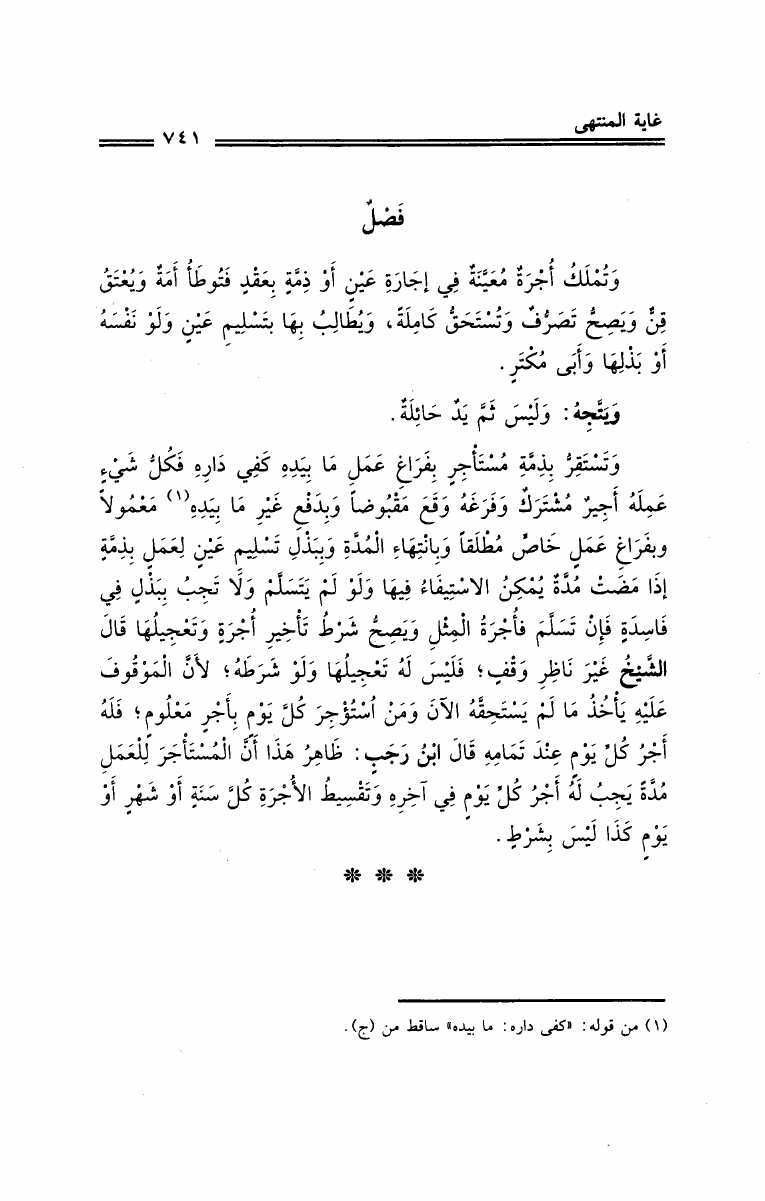 غاية المنتهى
٧٤١
فَصْلٌ
وَتُمْلَكُ أُجْرَةٌ مُعَيَّنَةٌ فِي إجَارَةِ عَيْنٍ أَوْ ذِمَّةٍ بِعَقْدٍ فَتُوطَأُ أَمَةٌ وَيُعْتَقُ
قِنٌّ وَيَصِحُّ تَصَرُّفٌ وَتُسْتَحَقُّ كَامِلَةً، وَيُطَالِبُ بِهَا بتَسْلِيمِ عَيْنٍ وَلَوْ نَفْسَهُ
أَوْ بَذْلِهَا وَأَبَى مُكْتَرٍ.
وَيَتَّجِهُ: وَلَيْسَ ثَمَّ يَدٌ حَائِلَةٌ.
وَتَسْتَقِرُّ بِذِمَّةِ مُسْتَأْجِرٍ بِفَرَاغِ عَمَلِ مَا بِيَدِهِ كَفِي دَارِهِ فَكُلُّ شَيْءٍ
عَمِلَهُ أَجِيرٌ مُشْتَرَكٌ وَفَرَغَهُ وَقَعَ مَقْبُوضاً وَبِدَفْعِ غَيْرِ مَا بِيَدِهِ(١) مَعْمُولاً
وبفَرَاغِ عَمَلِ خَاصٍّ مُطْلَقاً وَبِانْتِهَاءِ المُدَّةِ وَبِبَذْلِ تَسْلِيمِ عَيْنٍ لِعَمَلٍ بِذِمَّةٍ
إذَا مَضَتْ مُدَّةٌ يُمْكِنُ الاسْتِيفَاءُ فِيهَا وَلَوْ لَمْ يَتَسَلَّمْ وَلَا تَجِبُ بِبَذْلٍ فِي
فَاسِدَةٍ فَإِنْ تَسَلَّمَ فأُجْرَةُ المِثْلِ وَيَصِحُّ شَرْطُ تَأْخِيرِ أُجْرَةٍ وَتَعْجِيلُهَا قَالَ
الشَّيْخُ غَيْرَ نَاظِرِ وَقْفٍ؛ فَلَيْسَ لَهُ تَعْجِيلُهَا وَلَوْ شَرَطَهُ؛ لأَنَّ الْمَوْقُوفَ
عَلَيْهِ يَأْخُذُ مَا لَمْ يَسْتَحِقَّهُ الآنَ وَمَنْ اُسْتُؤْجِرَ كُلَّ يَوْمٍ بِأَجْرٍ مَعْلُومٍ؛ فَلَهُ
أَجْرُ كُلِّ يَوْمٍ عِنْدَ تَمَامِهِ قَالَ ابْنُ رَجَبٍ: ظَاهِرُ هَذَا أَنَّ الْمُسْتَأْجَرَ لِلْعَمَلِ
مُدَّةً يَجِبُ لَهُ أَجْرُ كُلِّ يَوْمٍ فِي آخِرِهِ وَتَقْسِيطُ الأُجْرَةِ كُلَّ سَنَةٍ أَوْ شَهْرٍ أَوْ
يَوْمٍ كَذَا لَيْسَ بِشَرْطٍ.
(١) من قوله: «كفى داره: ما بيده» ساقط من (ج).